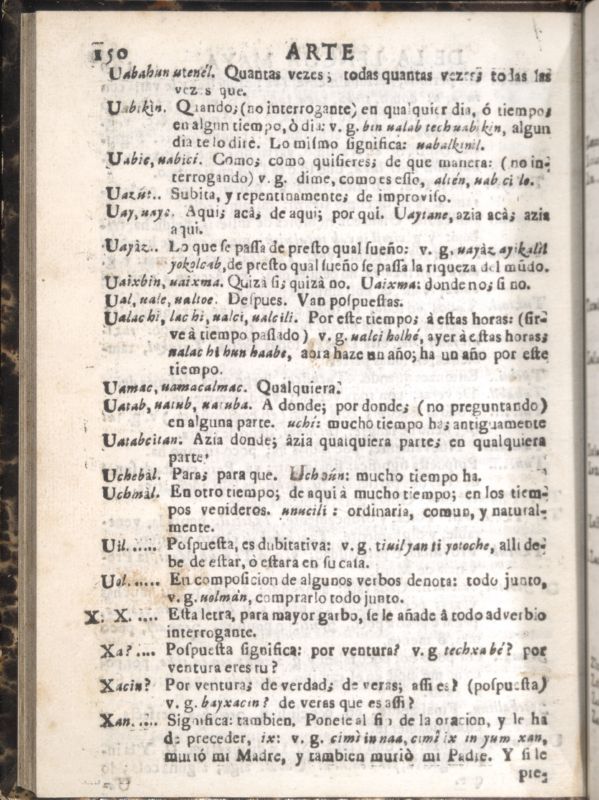 150 ARTE
Uabahun utenèl. Quantas vezes; todas quantas vezes; todas las
vezes que.
Uabikìn. Quando; (no interrogante) en qualquier dia, ó tiempo;
en algun tiempo, ò dia: v. g. bin ualab tech uabikin, algun
dia te lo diré. Lo mismo significa: uabalkinil.
Uabic, uabici. Como; como quisieres; de que manera: (no in-
terrogando) v. g. dime, como es esso, altén, uab ci lo.
Uazùt.. Subita, y repentinamente; de improviso.
Uay, uaye. Aqui; acà; de aqui; por qui. Uaytane, azia acà; azia
aqui.
Uayàz.. Lo que se passa de presto qual sueño: v. g. uayàz ayikalil
yokolcab, de presto qual sueño se passa la riqueza del mūdo.
Uaixbin, uaixma. Quizà si; quizà no. Uaixma: donde no; si no.
Ual, uale, ualtoe. Despues. Van pospuestas.
Ualac hi, lac hi, ualci, ualcili. Por este tiempo; à estas horas: (sir-
ve à tiempo passado) v. g. ualci holhé, ayer à estas horas;
ualac hi hun haabe, aora haze un año; ha un año por este
tiempo.
Uamac, uamacalmac. Qualquiera.
Uatab, uatub, uatuba. A donde; por donde; (no preguntando)
en alguna parte. uchi: mucho tiempo ha; antiguamente
Uatabcitan. Azia donde; àzia qualquiera parte; en qualquiera
parte.
Uchebàl. Para; para que. Uchaún: mucho tiempo ha.
Uchmàl. En otro tiempo; de aqui à mucho tiempo; en los tiem-
pos venideros. unucili: ordinaria, comun, y natural-
mente.
Uil...... Pospuesta, es dubitativa: v. g. tiuil yan ti yotoche, alli de-
be de estar, ó estarà en su casa.
Uol..... En composicion de algunos verbos denota: todo junto,
v. g. uolmàn, comprarlo todo junto.
X. X. .... Esta letra, para mayor garbo, se le añade à todo adverbio
interrogante.
Xa? .... Pospuesta significa: por ventura? v. g techxabé? por
ventura eres tu?
Xacin? Por ventura; de verdad; de veras; assi es? (pospuesta)
v. g. bayxacin? de veras que es assi?
Xan. .... Significa: tambien. Ponese al fin de la oracion, y le ha
de preceder, ix: v. g. cimi in naa, cimi ix in yum xan,
muriò mi Madre, y tambien muriò mi Padre. Y si le
pre-